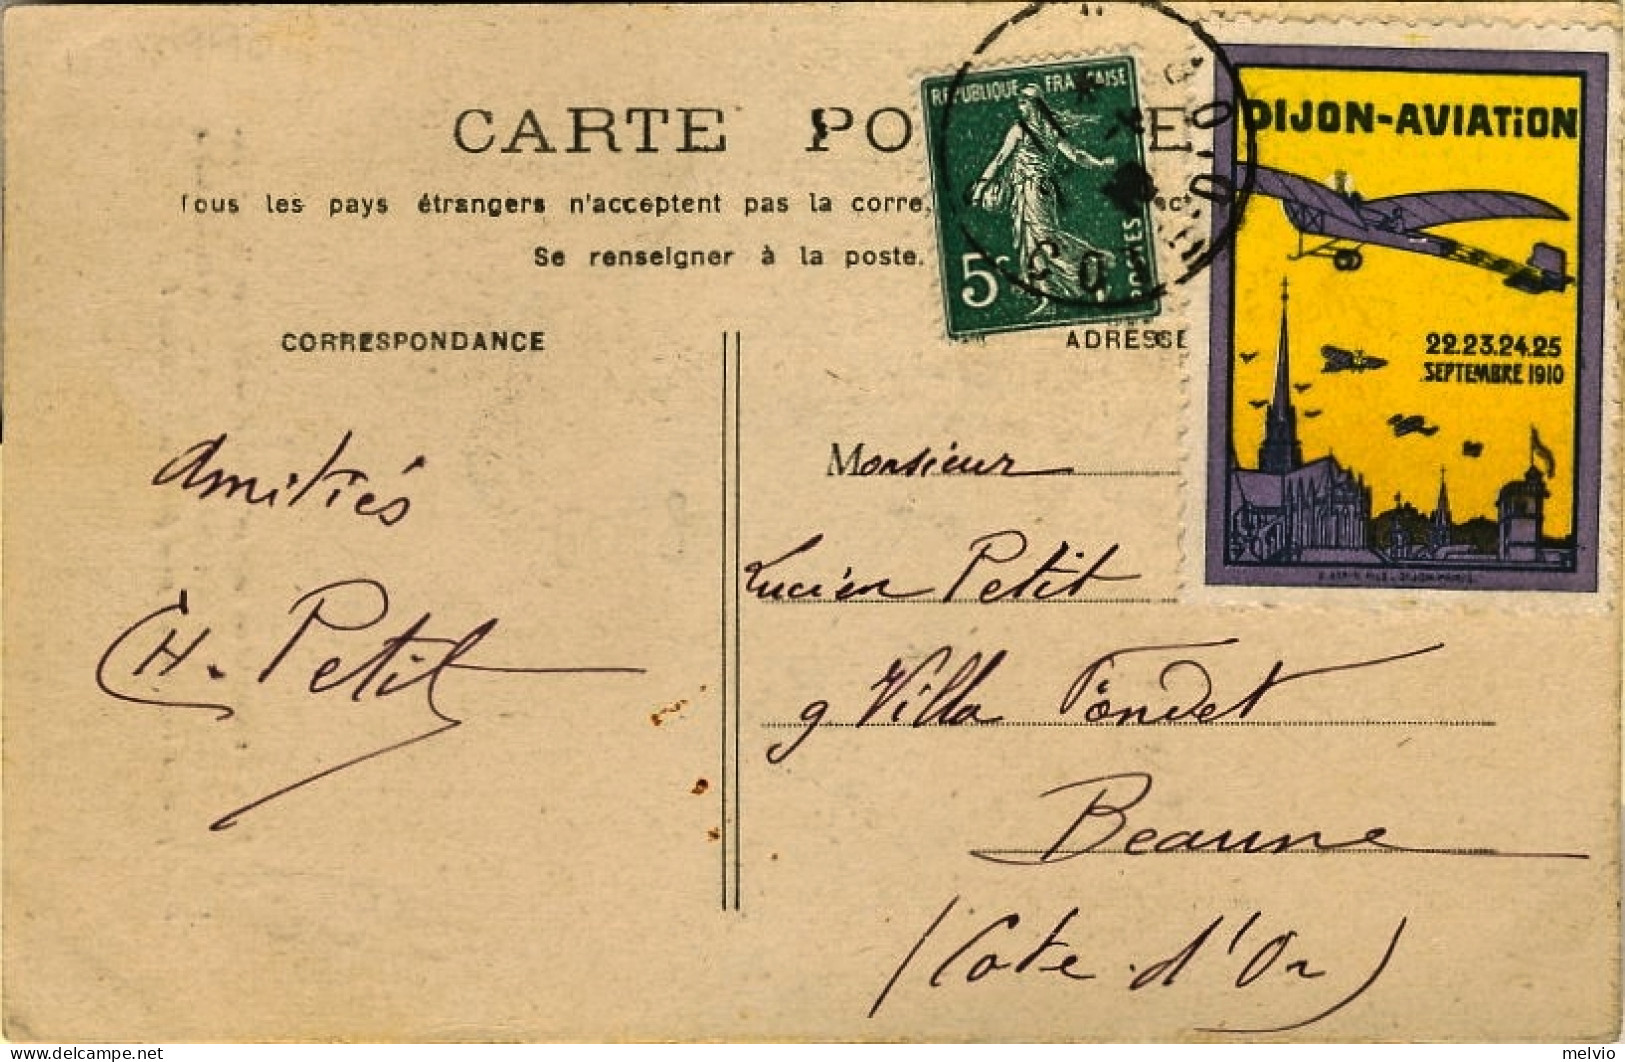 CARTE PO E
Tous les pays étrangers n'acceptent pas la corre.
Se renseigner à la poste.
RÉPUBLIQUE FRANÇAISE
5c
POSTES
DIJON
DIJON-AVIATiON
22.23.24.25
SEPTEMBRE 1910
CORRESPONDANCE
ADRESSE
Amitiés
H. Petit
Monsieur
Lucien Petit
9 Villa Fondet
Beaune
(Cote d'Or)
melvio